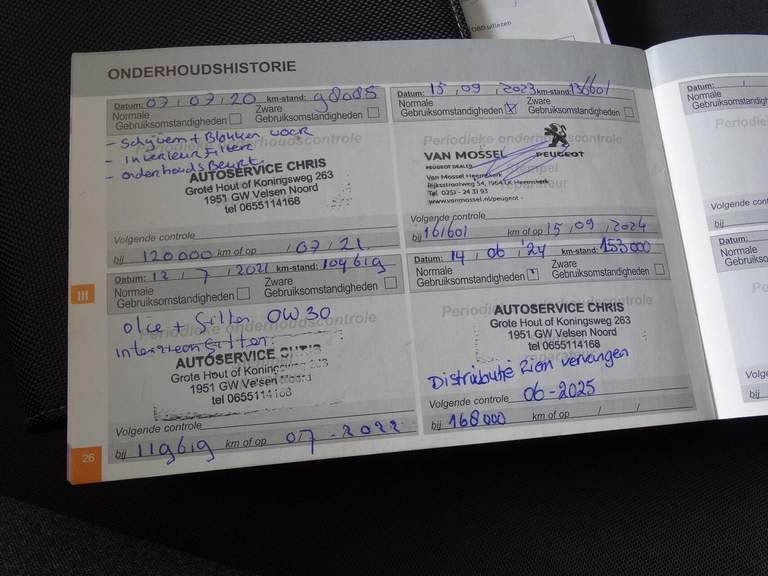 OBD uitlezen
ONDERHOUDSHISTORIE
Datum: 07 / 07 / 20 km-stand: 98085
Normale Gebruiksomstandigheden
Zware Gebruiksomstandigheden
Periodieke onderhoudscontrole
- Schijven + Blokken voor
- Interieur Filter
- onderhoudsBeurt
AUTOSERVICE CHRIS
Grote Hout of Koningsweg 263
1951 GW Velsen Noord
tel 0655114168
Volgende controle
bij 120000 km of op / 07 / 21
Datum: 12 / 7 / 2021 km-stand: 104619
Normale Gebruiksomstandigheden
Zware Gebruiksomstandigheden
Periodieke onderhoudscontrole
olie + Filter 0W30
interieur Filter
AUTOSERVICE CHRIS
Grote Hout of Koningsweg 263
1951 GW Velsen Noord
tel 0655114168
Volgende controle
bij 119619 km of op 07 - 2022
Datum: 15 / 09 / 2023 km-stand: 136601
Normale Gebruiksomstandigheden
Zware Gebruiksomstandigheden
Periodieke onderhoudscontrole
VAN MOSSEL PEUGEOT
PEUGEOT DEALER
Van Mossel Heemskerk
Rijksstraatweg 54, 1964 LK Heemskerk
Tel 0251 - 24 31 93
www.vanmossel.nl/peugeot
Volgende controle
bij 161601 km of op 15 / 09 / 2024
Datum: 14 / 06 / '24 km-stand: 153000
Normale Gebruiksomstandigheden
Zware Gebruiksomstandigheden
Periodieke onderhoudscontrole
AUTOSERVICE CHRIS
Grote Hout of Koningsweg 263
1951 GW Velsen Noord
tel 0655114168
Distributie Riem vervangen
Volgende controle 06-2025
bij 168000 km of op / /
III
26
Datum: /
Normale
Gebruiksomstandigheden
Volgende
bij
Datum:
Normale
Volge
bij